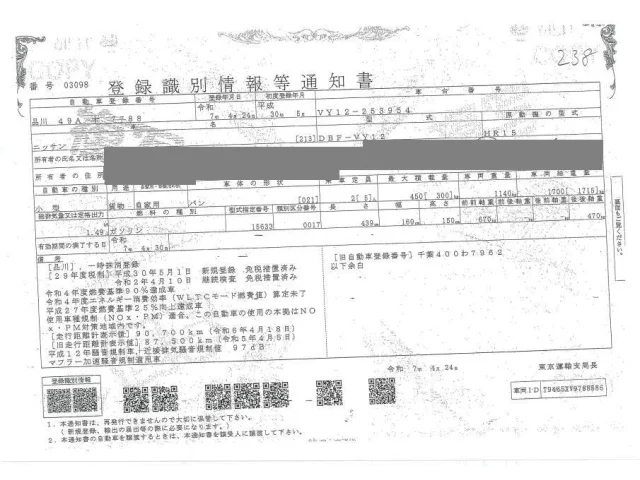 COPY
238
番号 03098
登録識別情報等通知書
自動車登録番号 登録年月日 初度登録年月 車台番号
品川 令和 7年 4月 24日 平成 30年 5月 VY12-253954
車名 型式 原動機の型式
ニッサン [213] DBF-VY12 HR15
所有者の氏名又は名称
所有者の住所
自動車の種別 用途 車体の形状 乗車定員 最大積載量 車両重量 車両総重量
小型 貨物 自家用 バン [021] 2[ 5]人 450[ 300]kg 1140kg 1700[ 1715]kg
総排気量又は定格出力 燃料の種類 型式指定番号 類別区分番号 長さ 幅 高さ 前前軸重 前後軸重 後前軸重 後後軸重
1.49 ガソリン 15633 0017 439cm 169cm 150cm 670kg 470kg
有効期間の満了する日 令和 7年 4月 30日
備考
[品川],一時抹消登録
[29年度税制]平成30年5月1日 新規登録 免税措置済み
令和2年4月10日 継続検査 免税措置済み
令和4年度燃費基準90%達成車
令和4年度エネルギー消費効率(WLTCモード燃費値)算定未了
平成27年度燃費基準25%向上達成車
使用車種規制(NOx・PM)適合,この自動車の使用の本拠はNO
x・PM対策地域内です。
[走行距離計表示値]90,700km(令和6年4月18日)
[旧走行距離計表示値]87,500km(令和5年4月5日)
平成12年騒音規制車,近接排気騒音規制値 97dB
マフラー加速騒音規制適用車
[旧自動車登録番号]千葉400わ7962
以下余白
裏面もご覧ください。
令和 7年 4月 24日 東京運輸支局長
登録識別情報
車両ID
1.本通知書は、再発行できませんので大切に保管して下さい。
(新規登録、輸出の届出等の際に必要になります。)
2.本通知書の自動車を譲渡するときは、本通知書を譲受人に譲渡して下さい。